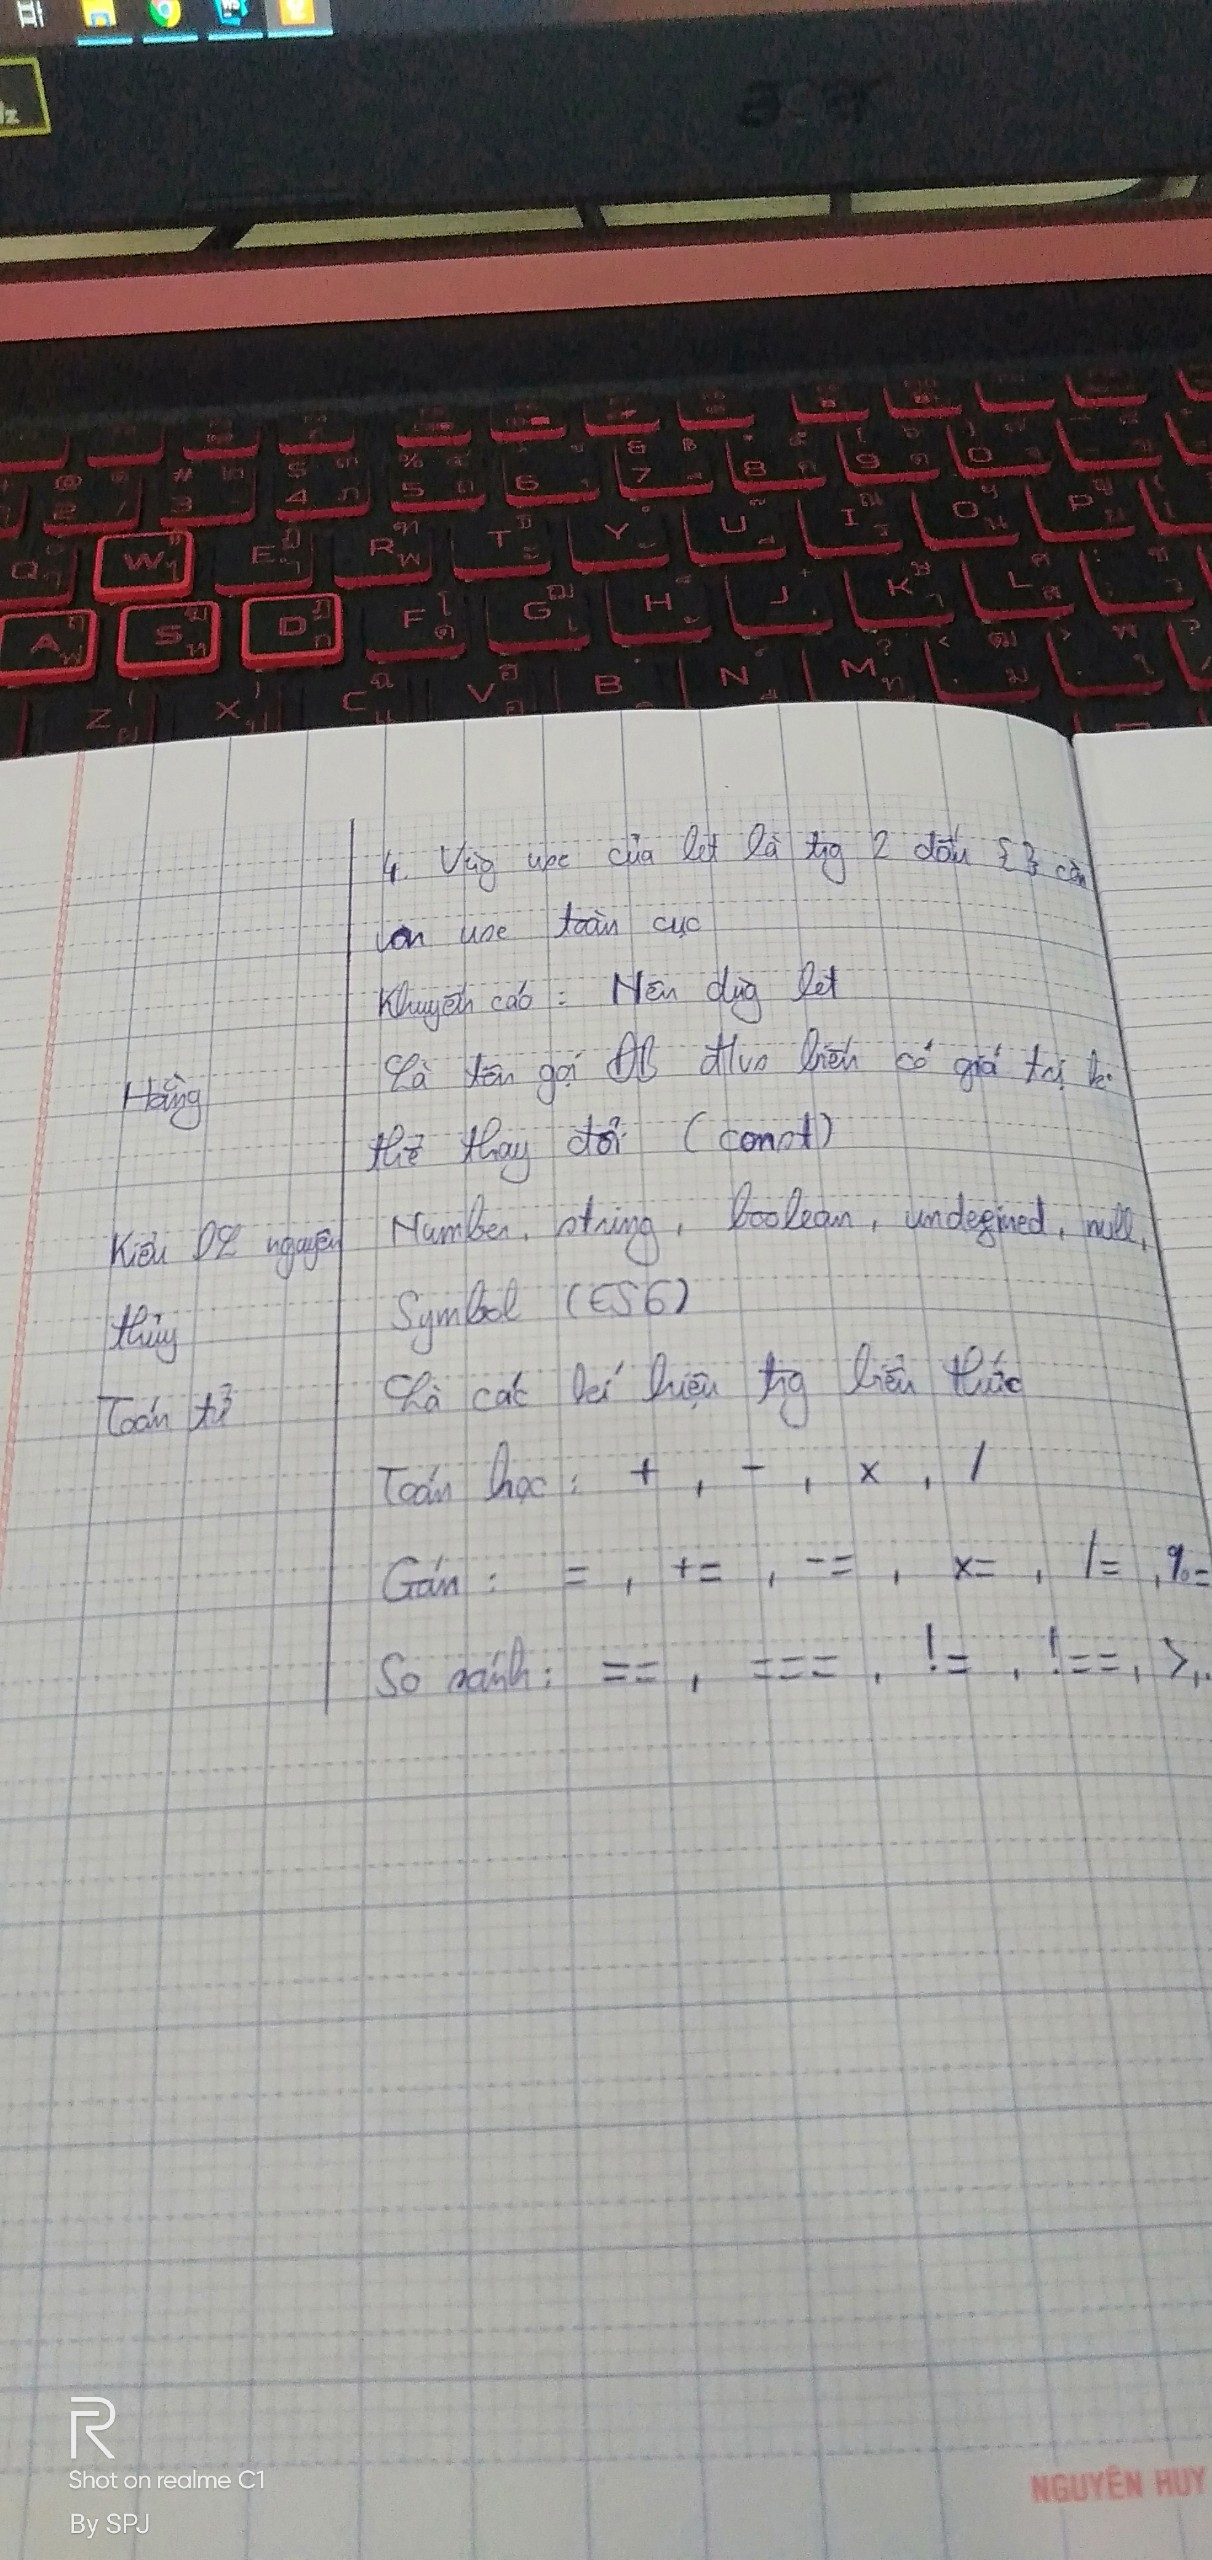 4. Vùg use của let là trg 2 dấu {} còn
var use toàn cục
Khuyến cáo : Nên dùg let
Hằng
Là tên gọi ĐB đ/v biến có giá trị k
thể thay đổi (const)
Kiểu DL nguyên
thủy
Number, string, boolean, undefined, null,
Symbol (ES6)
Toán tử
Là các kí hiệu trg biểu thức
Toán học : + , - , x , /
Gán : = , += , -= , x= , /= , %=
So sánh : == , === , != , !== , >, ..
NGUYÊN HUY
Shot on realme C1
By SPJ